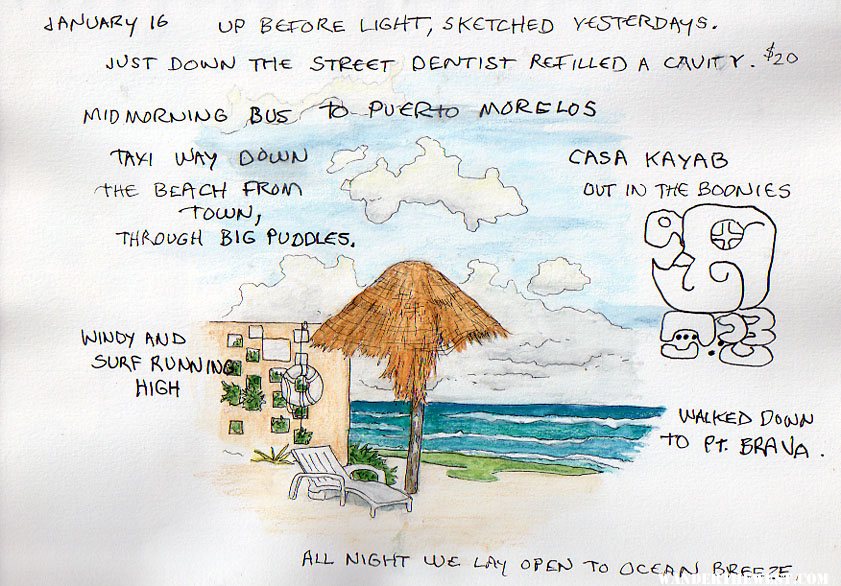 JANUARY 16 UP BEFORE LIGHT, SKETCHED YESTERDAYS.
JUST DOWN THE STREET DENTIST REFILLED A CAVITY. $20
MIDMORNING BUS TO PUERTO MORELOS
TAXI WAY DOWN
THE BEACH FROM
TOWN,
THROUGH BIG PUDDLES.
CASA KAYAB
OUT IN THE BOONIES
WINDY AND
SURF RUNNING
HIGH
WALKED DOWN
TO PT. BRAVA.
ALL NIGHT WE LAY OPEN TO OCEAN BREEZE